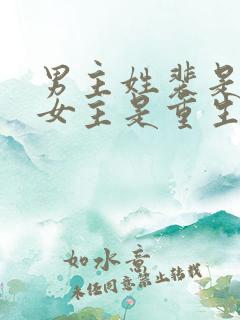 男主姓裴是
女主是重生
如水意
未经同意禁止转载